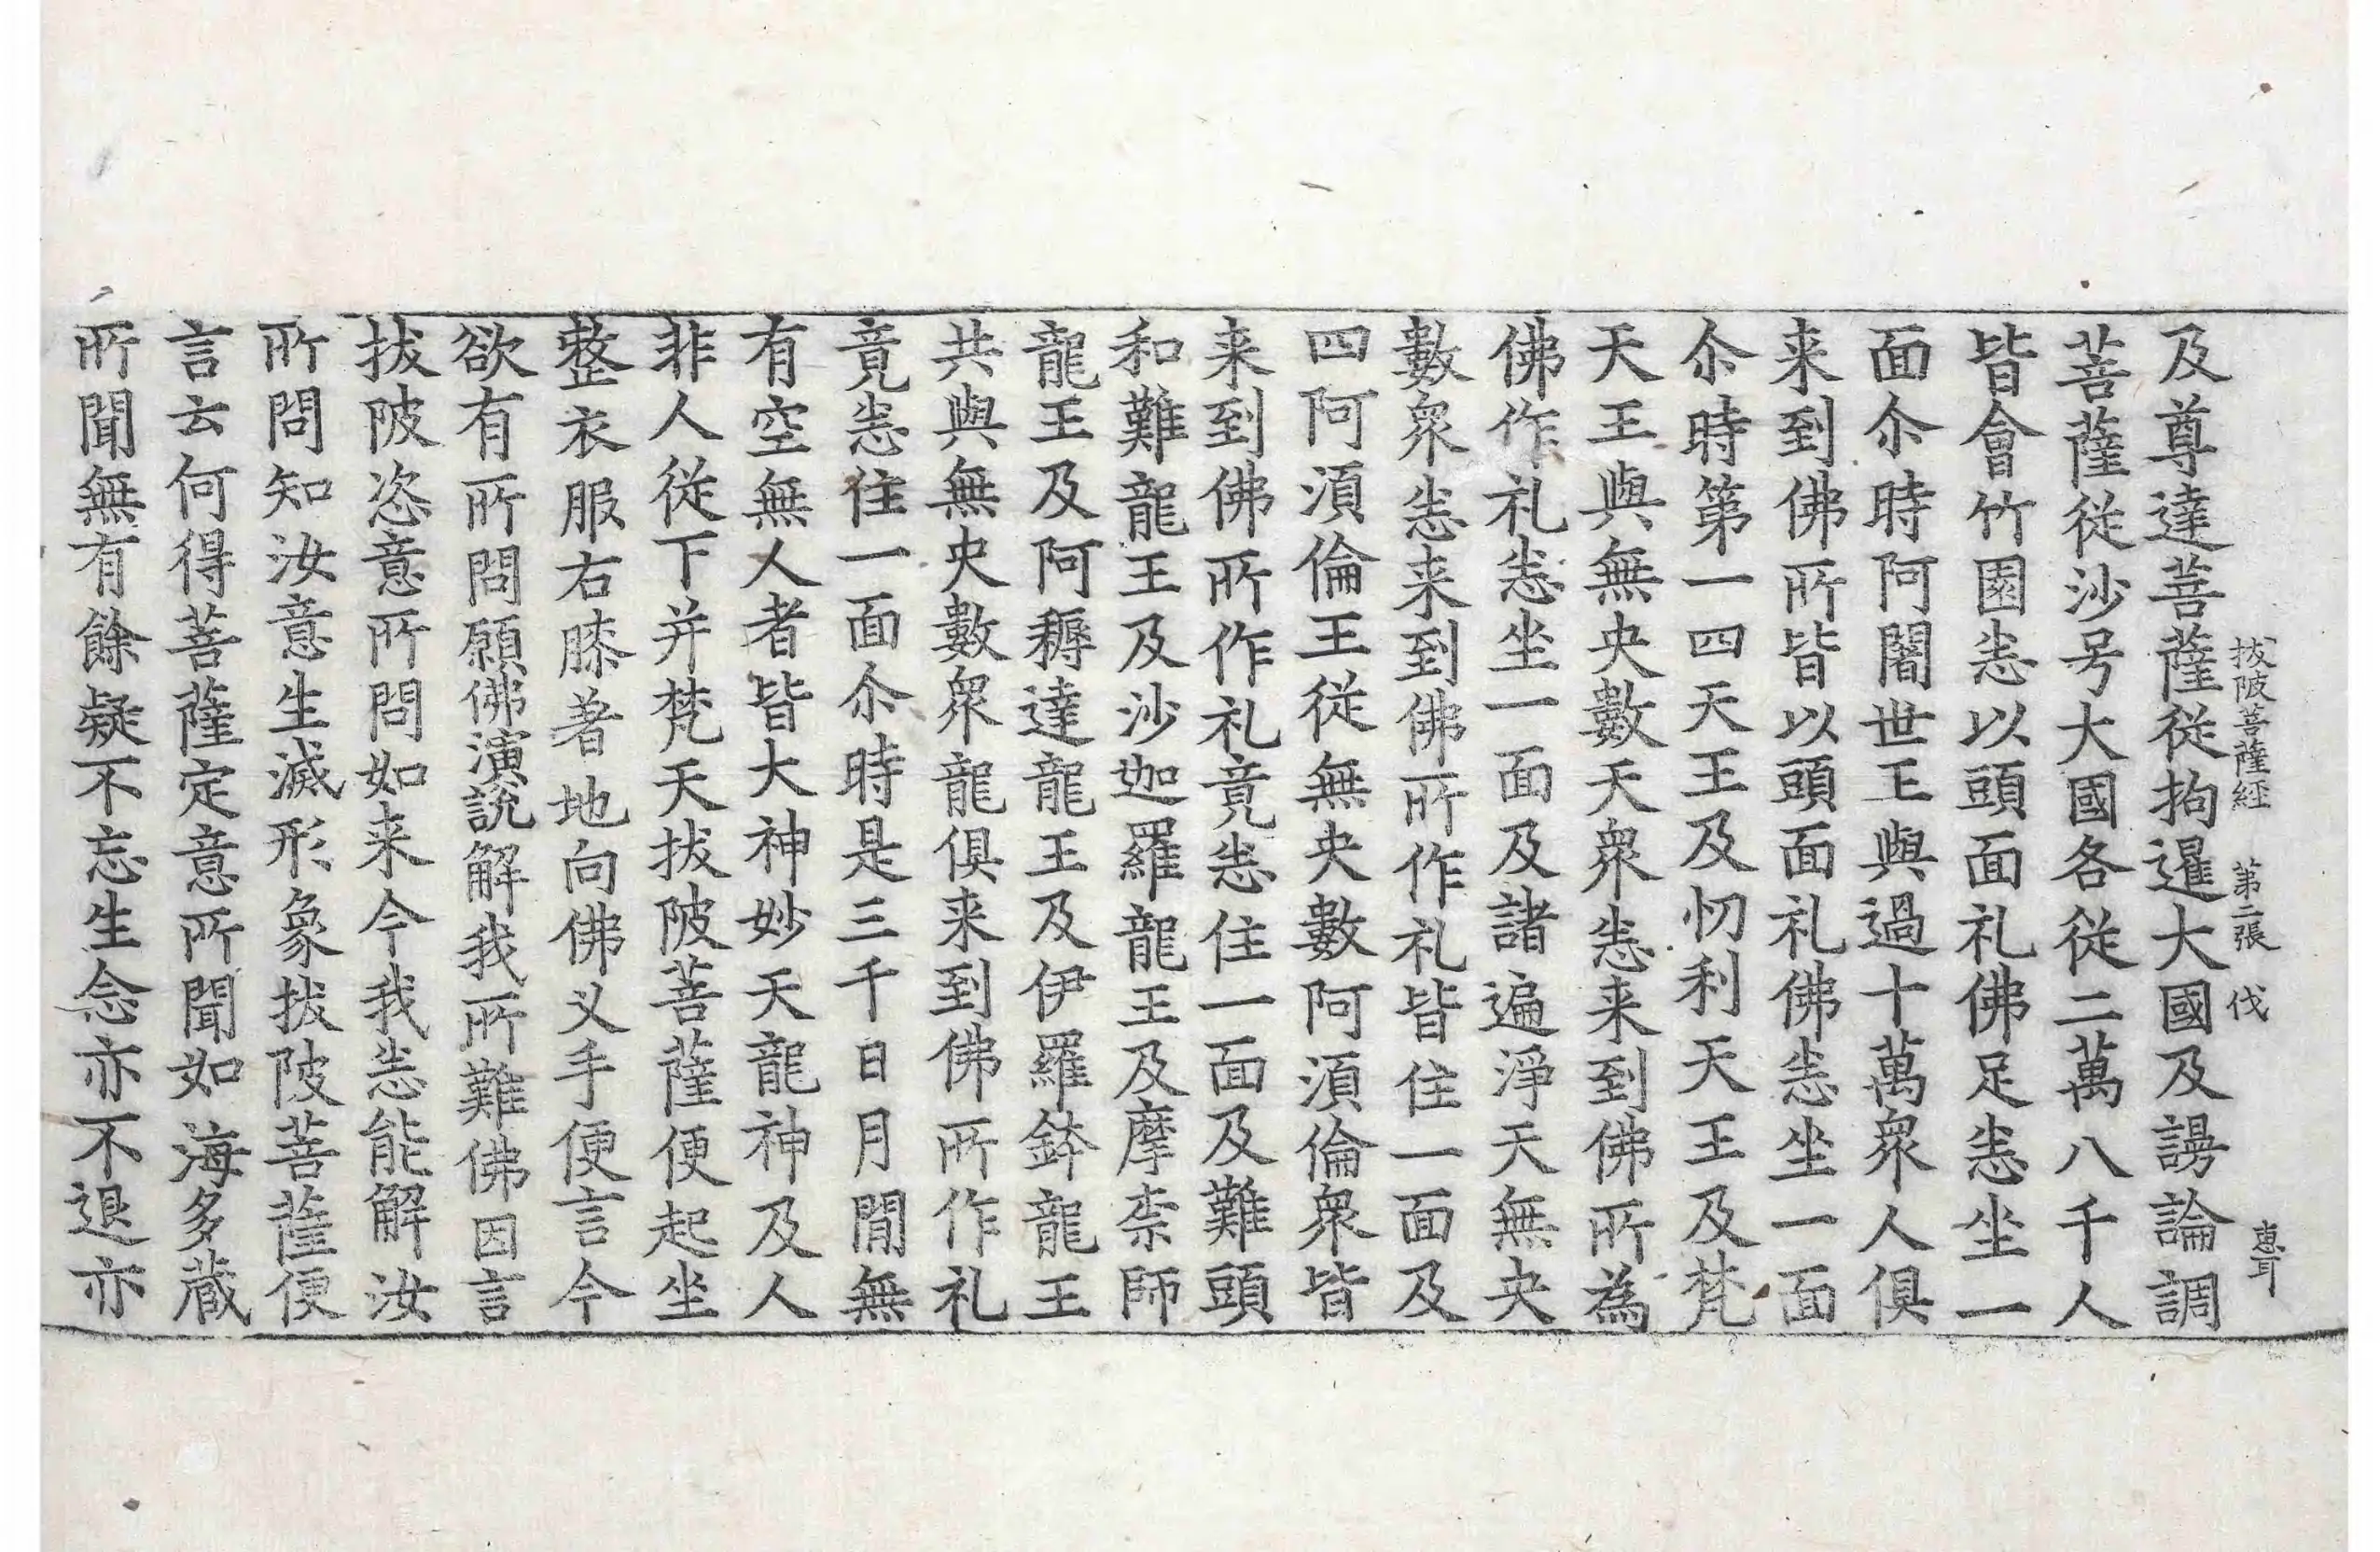 拔陂菩薩経　第二張　伐　惠耳
及尊達菩薩從拘暹大國及謣論調
菩薩従沙号大國各從二萬八千人
皆會竹園恚以頭面礼佛足恚坐一
面尒時阿闍世王與過十萬衆人俱
来到佛所皆以頭面礼佛恚坐一面
尒時第一四天王及忉利天王及梵
天王與無央數天衆恚来到佛所為
佛作礼恚坐一面及諸遍淨天無央
數衆恚来到佛所作礼皆住一面及
四阿湏倫王從無央數阿湏倫衆皆
来到佛所作礼竟恚住一面及難頭
和難龍王及沙迦羅龍王及摩柰師
龍王及阿耨達龍王及伊羅鉢龍王
共與無央數衆龍俱来到佛所作礼
竟恚住一面尒時是三千日月閒無
有空無人者皆大神妙天龍神及人
非人從下并梵天拔陂菩薩便起坐
整衣服右膝著地向佛义手便言今
欲有所問願佛演說解我所難佛因言
拔陂恣意所問如来今我恚能解汝
所問知汝意生滅形象拔陂菩薩便
言云何得菩薩定意所聞如海多蔵
所聞無有餘疑不忘生念亦不退亦